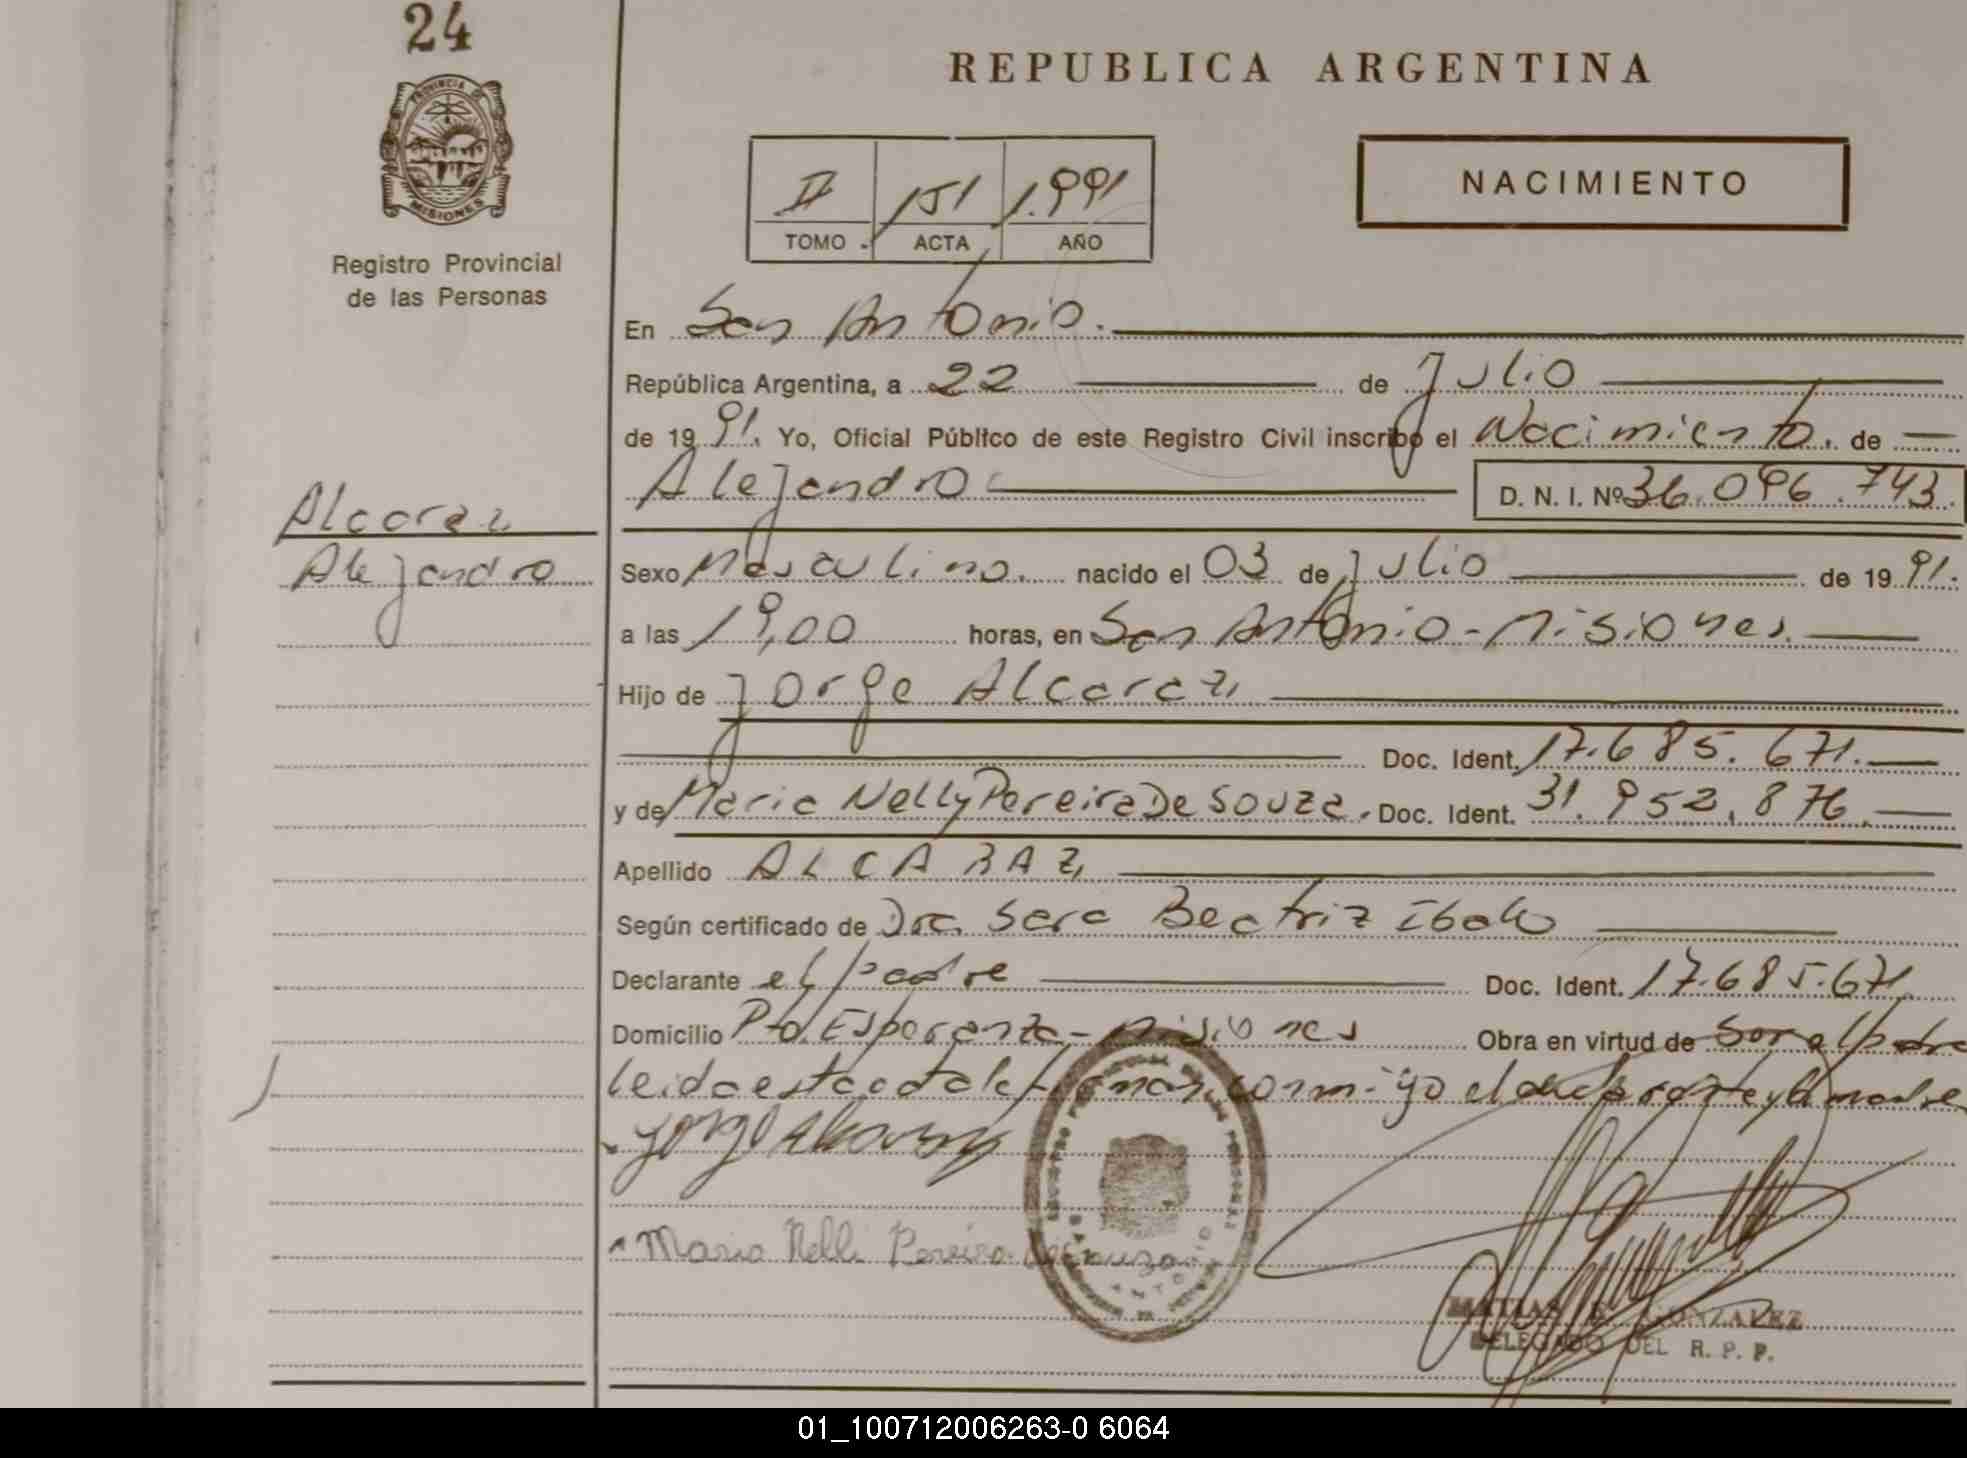 24
PROVINCIA DE
MISIONES
Registro Provincial
de las Personas
Alcaraz
Alejandro
REPUBLICA ARGENTINA
II 151 1.991
TOMO ACTA AÑO
NACIMIENTO
En San Antonio.
República Argentina, a 22 de Julio
de 1991. Yo, Oficial Público de este Registro Civil inscribo el Nacimiento. de
Alejandro D. N. I. Nº 36.096.743.
Sexo Masculino. nacido el 03 de Julio de 1991.
a las 19,00 horas, en San Antonio - Misiones.
Hijo de Jorge Alcaraz
Doc. Ident. 17.685.671.
y de Maria Nelly Pereira De Souza. Doc. Ident. 31.952.876.
Apellido ALCARAZ
Según certificado de Dra. Sara Beatriz
Declarante el padre Doc. Ident. 17.685.671
Domicilio Pto. Esperanza - Misiones Obra en virtud de ser el padre
leida esta acta la firman conmigo el declarante y la madre
Jorge Alcaraz
Maria Nelli Pereira de souza
MATIAS GONZALEZ
DELEGADO DEL R. P. P.
01_100712006263-0 6064